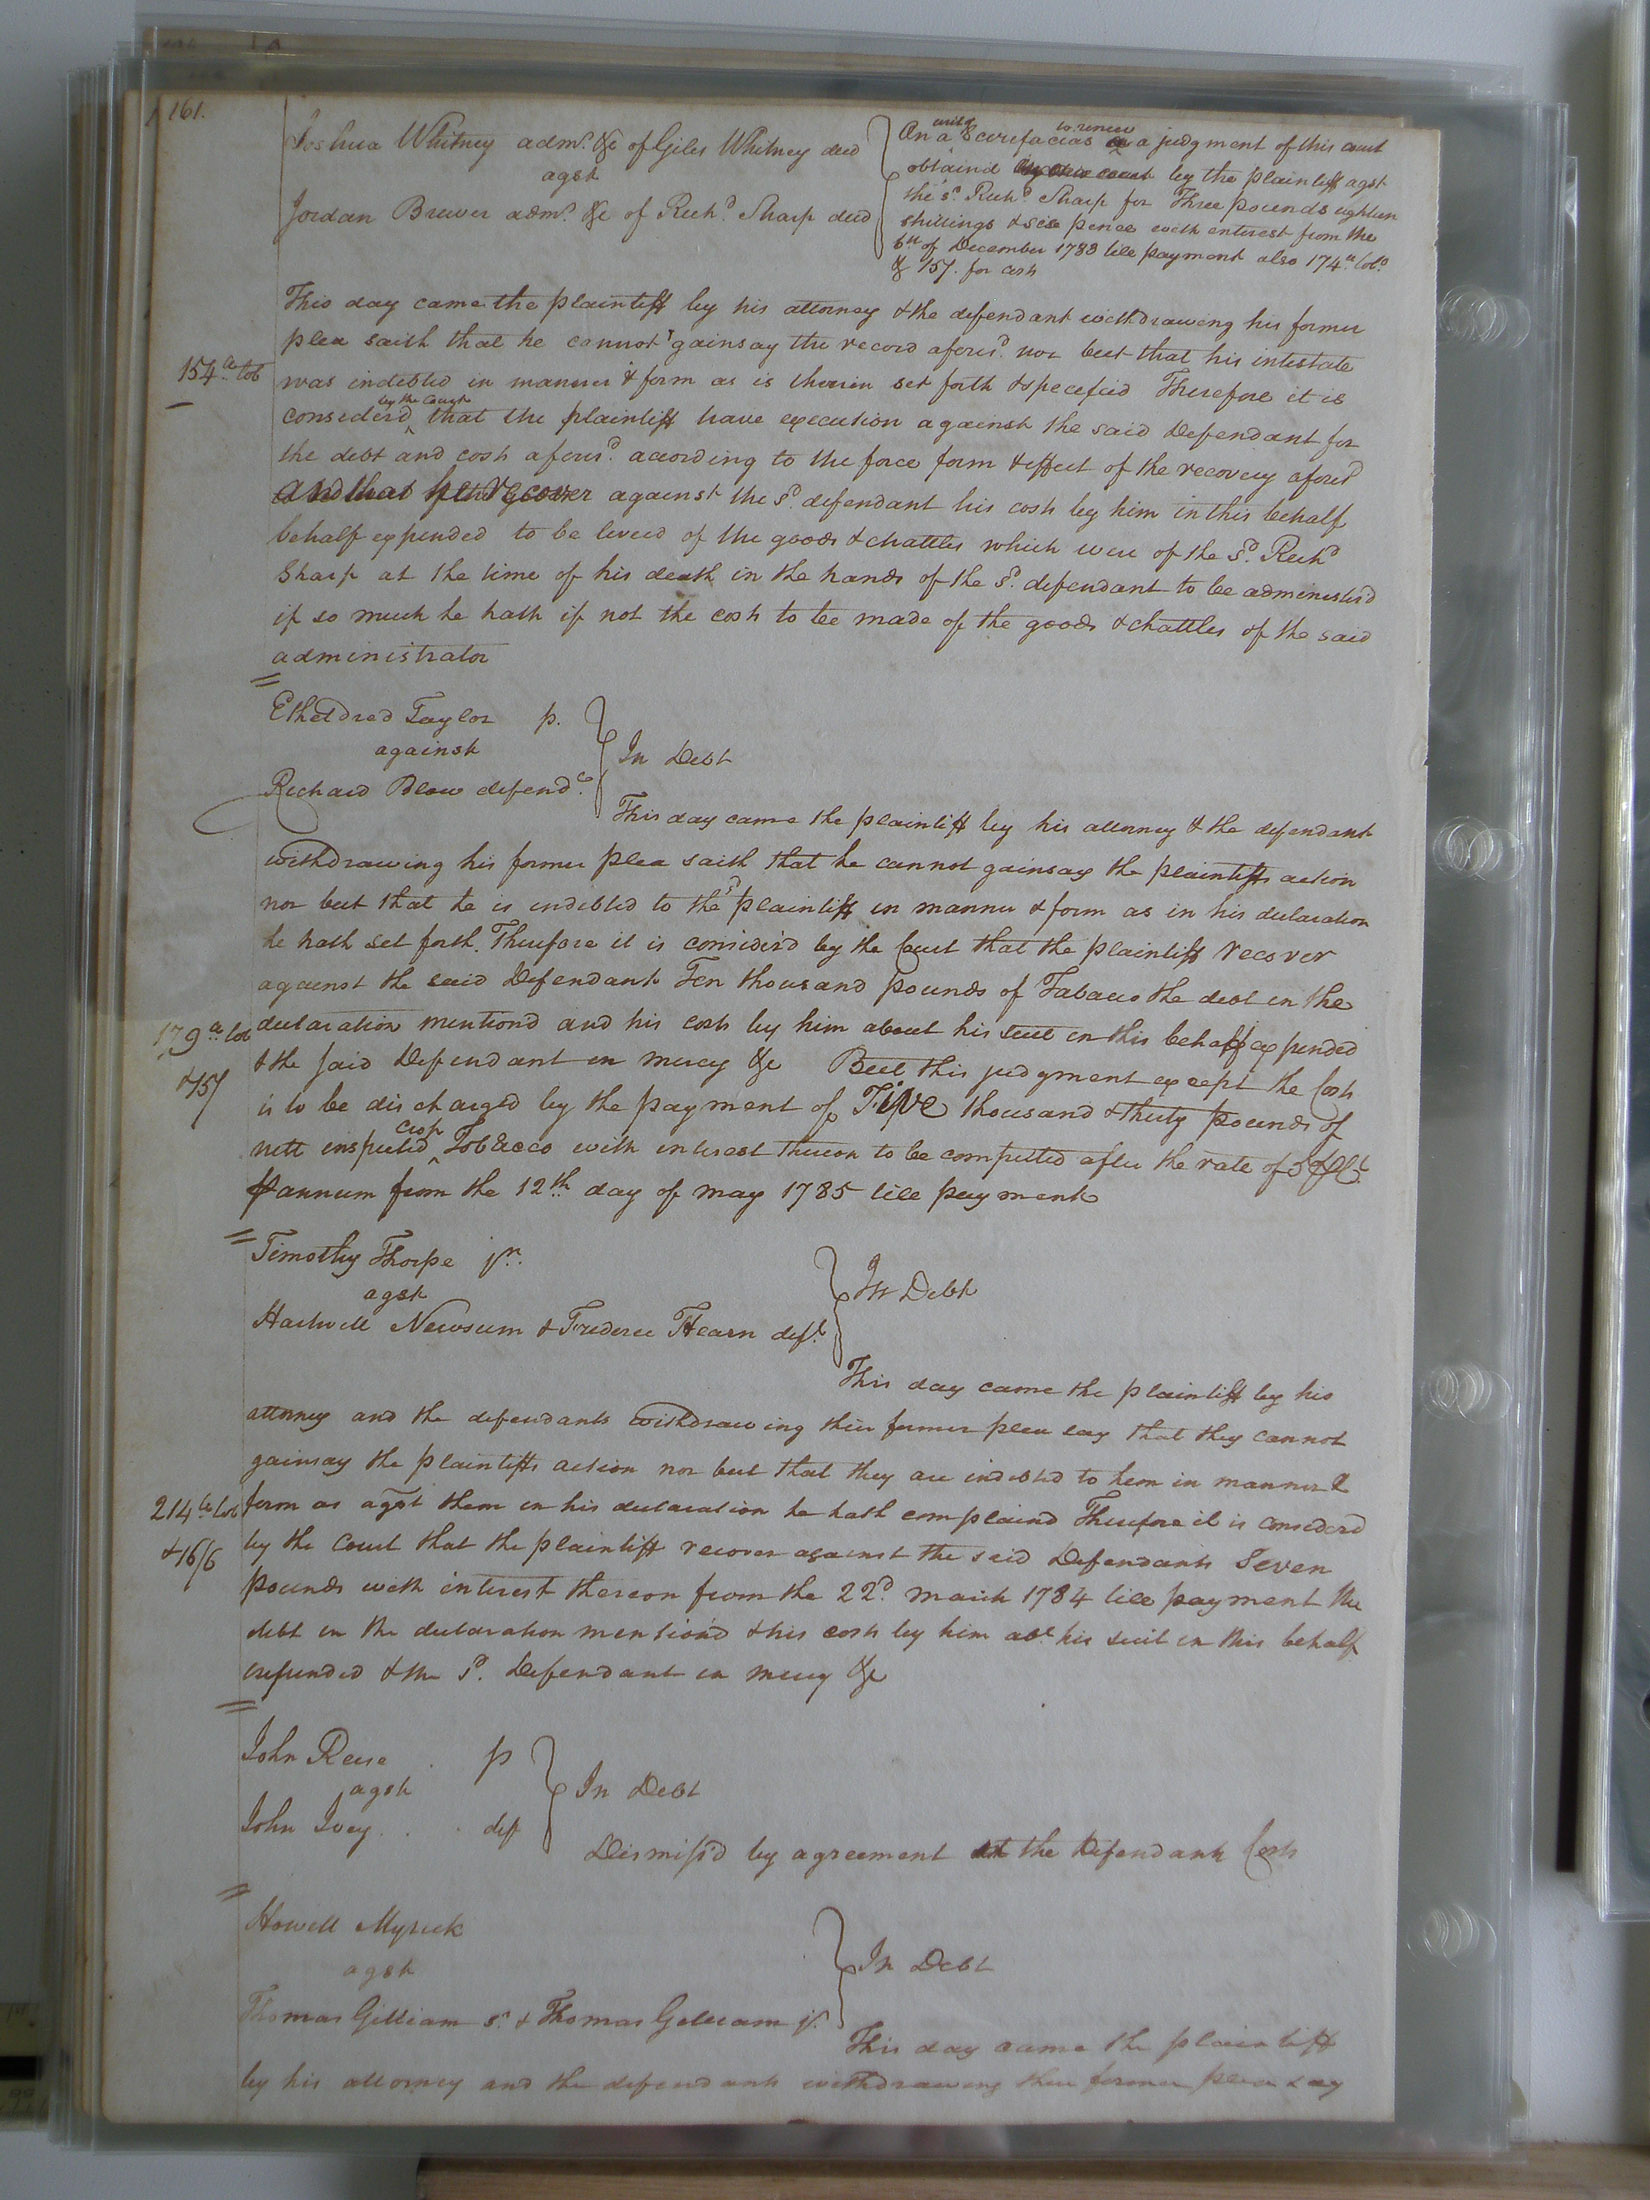 161.
Joshua Whitney adm.r &c of Giles Whitney decd
agst
Jordan Brewer adm.r &c of Rich.d Sharp decd
On a writ Scirefacias to renew a judgment of this court
obtaind by the plaintiff agst
the s.d Rich.d Sharp for Three pounds eighteen
shillings & six pence with interest from the
6th of December 1783 till payment also 174.lb tob.o
& 15/. for costs
This day came the plaintiff by his attorney & the defendant withdrawing his former
plea saith that he cannot gainsay the record afores.d nor but that his intestate
154.lb tob
was indebted in manner & form as is therein set forth & specefied Therefore it is
considerd by the Court that the plaintiff have execution against the said Defendant for
the debt and costs afores.d according to the force form & effect of the recovery afores.d
and that he recover against the s.d defendant his costs by him in this behalf
behalf expended to be levied of the goods & chattles which were of the s.d Rich.d
Sharp at the time of his death in the hands of the s.d defendant to be administerd
if so much he hath if not the costs to be made of the goods & chattles of the said
administrator
Etheldred Taylor p.
against
Richard Blow defend.t
In Debt
This day came the plaintiff by his attorney & the defendant
withdrawing his former plea saith that he cannot gainsay the plaintiffs action
nor but that he is indebted to the s.d plaintiff in manner & form as in his declaration
he hath set forth. Therefore it is considerd by the Court that the plaintiff recover
against the said Defendant Ten thousand pounds of Tobacco the debt in the
179.lb tob
declaration mentiond and his costs by him about his suit in this behalf expended
&15/
& the said Defendant in mercy &c But this judgment except the Costs
is to be discharged by the payment of Five thousand & thirty pounds of
nett inspected crop Tobacco with interest thereon to be computed after the rate of 5 P Ct
P annum from the 12th day of may 1785 till payment
Timothy Thorpe jr.
agst
Hartwell Newsum & Frederic Hearn deft
In Debt
This day came the plaintiff by his
attorney and the defendants withdrawing their former plea say that they cannot
gainsay the plaintiffs action nor but that they are indebted to him in manner &
214.lb tob
form as agst them in his declaration he hath complaind Therefore it is considerd
&16/6
by the Court that the plaintiff recover against the said Defendants Seven
pounds with interest thereon from the 22.d march 1784 till payment the
debt in the declaration mentiond & his costs by him abt his suit in this behalf
expended & the s.d Defendant in mercy &c
John Rese p
agst
John Ivey . . deft
In Debt
Dismiss'd by agreement at the Defendants Costs
Howell Myrick
agst
Thomas Gilliam s.r & Thomas Gilliam jr.
In Debt
This day came the plaintiff
by his attorney and the defendants withdrawing their former plea say